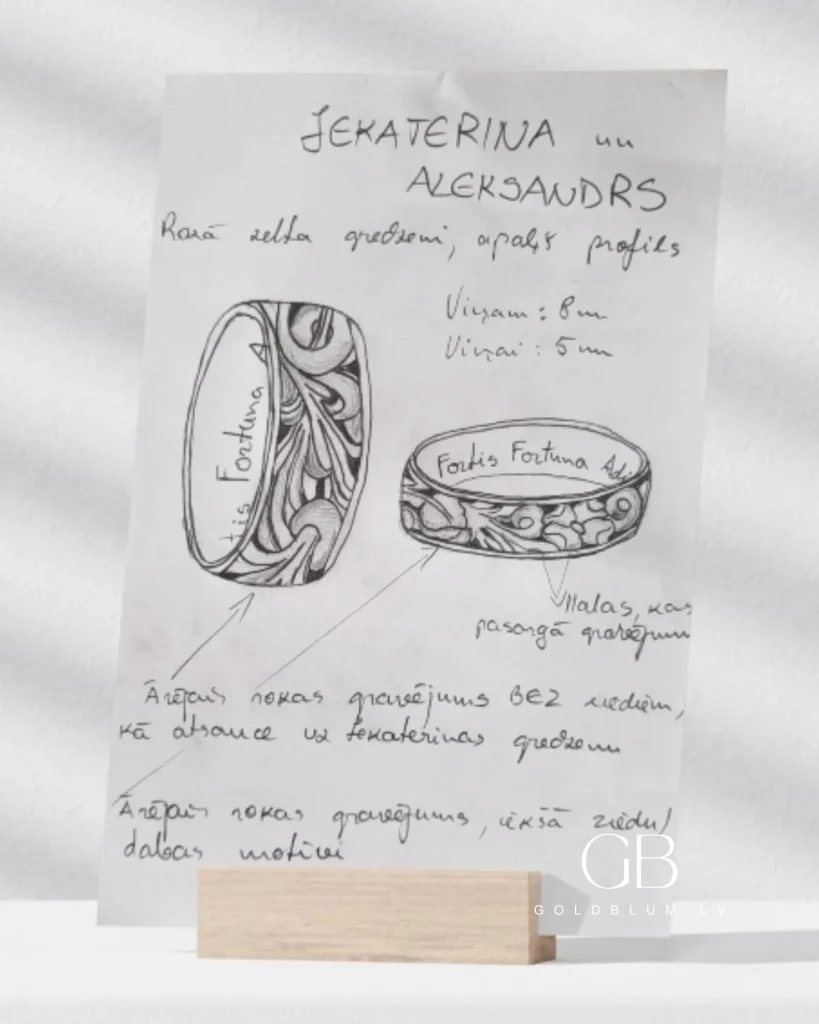 JEKATERINA un
ALEKSANDRS
Rozā zelta gredzeni, apaļš profils
Viņam : 8m
Viņai : 5mm
tis Fortuna A
Fortis Fortuna Adi
Malas, kas
pasargā gravējumu
Ārējais rokas gravējums BEZ ziediem,
kā atsauce uz Jekaterinas gredzenu
Ārējais rokas gravējums, iekšā ziedu/
dabas motīvi
GB
GOLDBLUM.LV